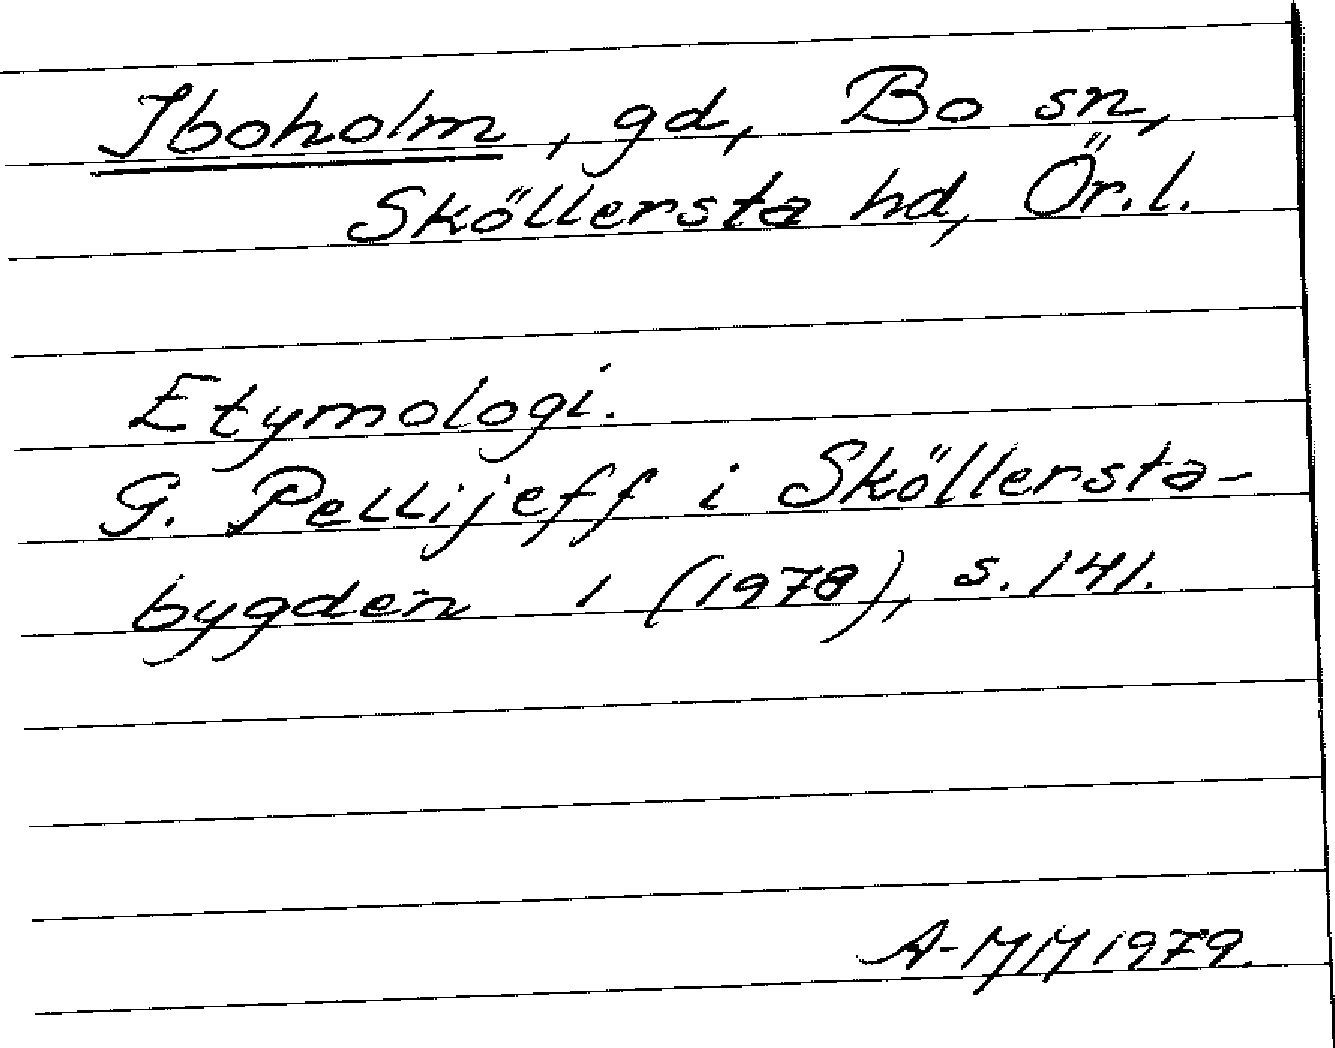 Iboholm, gd, Bo sn,
Sköllersta hd, Ör.l.
Etymologi.
G. Pellijeff i Sköllersta-
bygden 1 (1978), s. 141.
A-MM 1979.